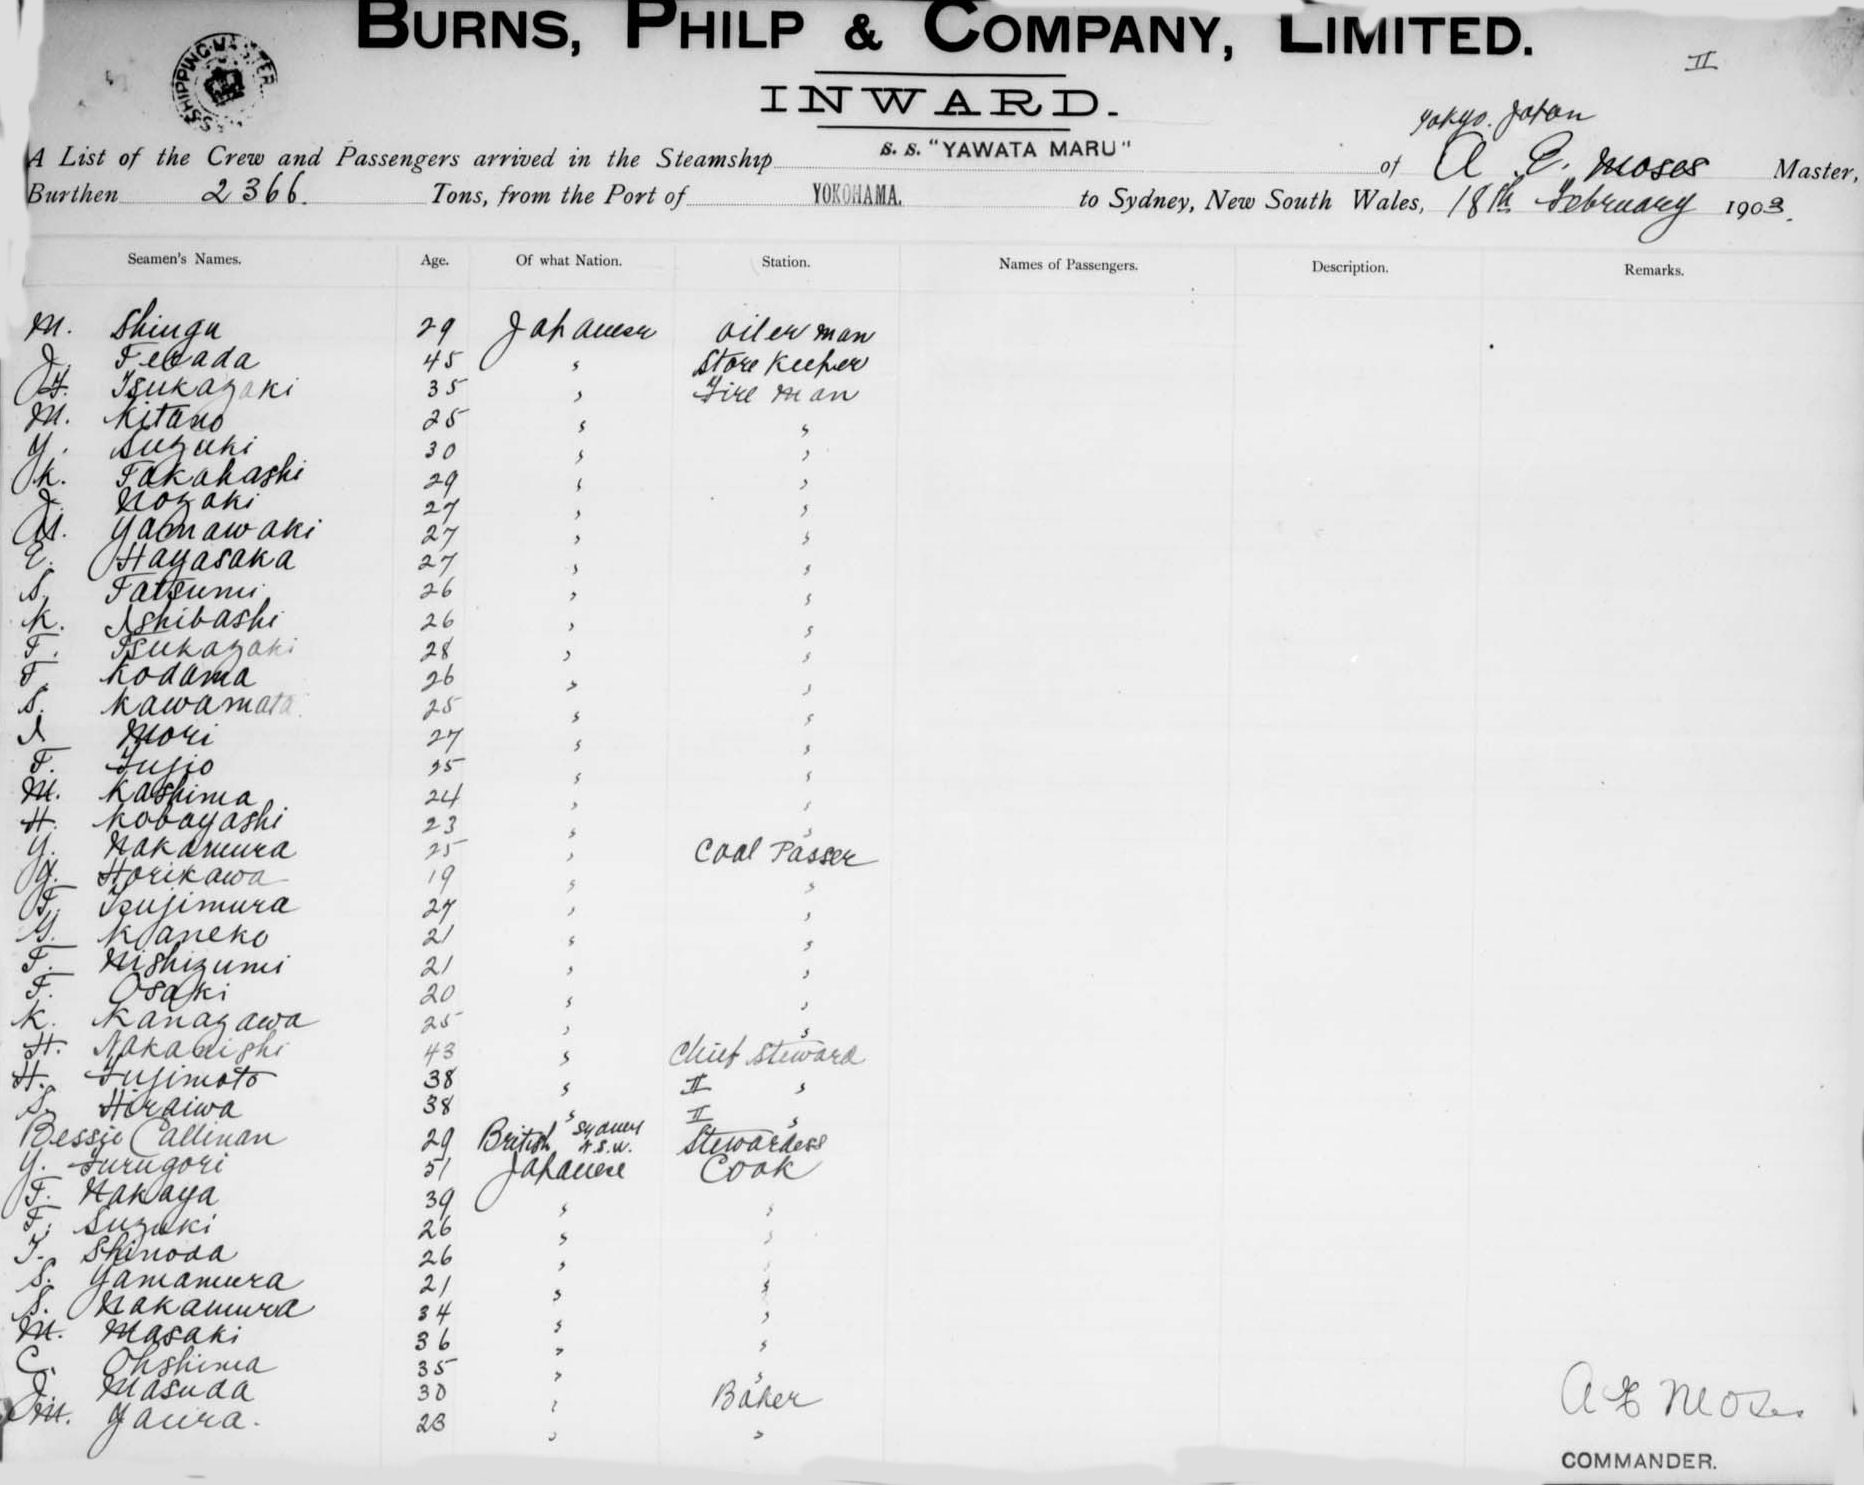 BURNS, PHILP & COMPANY, LIMITED.
II
SHIPPING MASTER
INWARD.
Tokyo. Japan
A List of the Crew and Passengers arrived in the Steamship S. S. "YAWATA MARU" of A. E. Moses Master,
Burthen 2366. Tons, from the Port of YOKOHAMA. to Sydney, New South Wales, 18th February 1903.
Seamen's Names. Age. Of what Nation. Station. Names of Passengers. Description. Remarks.
M. Shingu 29 Japanese oiler man
J. Terada 45 " Store Keeper
H. Tsukazaki 35 " Fire man
M. Kitano 25 " "
Y. Suzuki 30 " "
K. Takahashi 29 " "
J. Nozaki 27 " "
M. Yamawaki 27 " "
E. Hayasaka 27 " "
S. Tatsumi 26 " "
K. Ishibashi 26 " "
T. Tsukazaki 28 " "
T. Kodama 26 " "
S. Kawamata 25 " "
I Mori 27 " "
T. Fujio 25 " "
M. Kashima 24 " "
H. Kobayashi 23 " "
Y. Nakamura 25 " Coal Passer
Y. Horikawa 19 " "
T. Tsujimura 27 " "
G. Kaneko 21 " "
T. Nishizumi 21 " "
T. Osaki 20 " "
K. Kanazawa 25 " "
H. Nakanishi 43 " Chief Steward
H. Fujimoto 38 " II "
S. Hiraiwa 38 " II "
Bessie Callinan 29 British Sydney N.S.W. Stewardess
Y. Furugori 51 Japanese Cook
T. Nakaya 39 " "
T. Suzuki 26 " "
T. Shinoda 26 " "
S. Yamamura 21 " "
S. Nakamura 34 " "
M. Masaki 36 " "
C. Ohshima 35 " "
J. Masuda 30 " Baker
M. Yaura. 23 " "
A E Moses
COMMANDER.